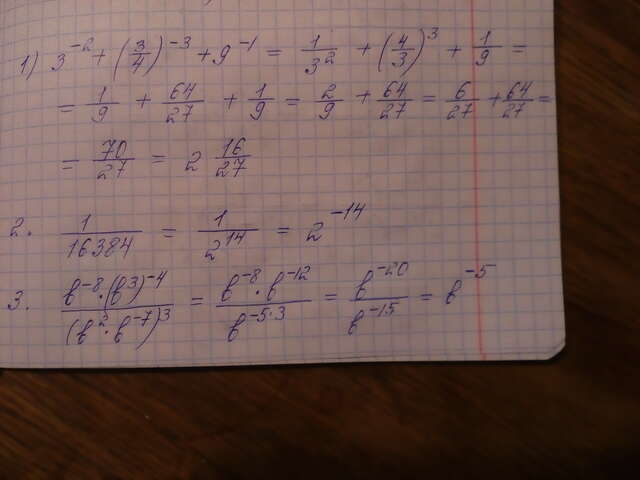 1) 3^{-2} + (3/4)^{-3} + 9^{-1} = 1/3^2 + (4/3)^3 + 1/9 =
= 1/9 + 64/27 + 1/9 = 2/9 + 64/27 = 6/27 + 64/27 =
= 70/27 = 2 16/27
2. 1/16384 = 1/2^{14} = 2^{-14}
3. b^{-8}·(b^3)^{-4}/(b^2·b^{-7})^3 = b^{-8}·b^{-12}/b^{-5·3} = b^{-20}/b^{-15} = b^{-5}